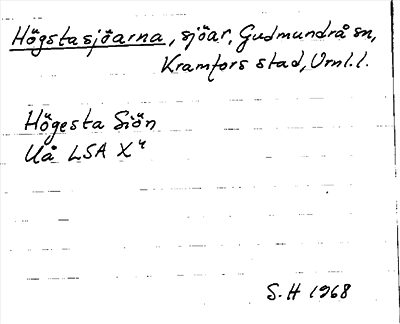 Högstasjöarna, sjöar, Gudmundrå sn,
Kramfors stad, Vrnl.l.
Högesta Siön
Uå LSA X4
S.H 1968